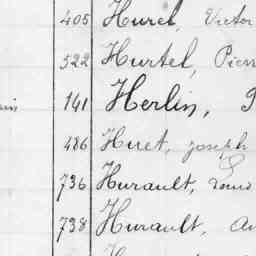 405 Hurel, Victor
522 Hurtel,
141 Herlin,
486 Huet, Joseph
736 Hurault, Louis
738 Hurault,